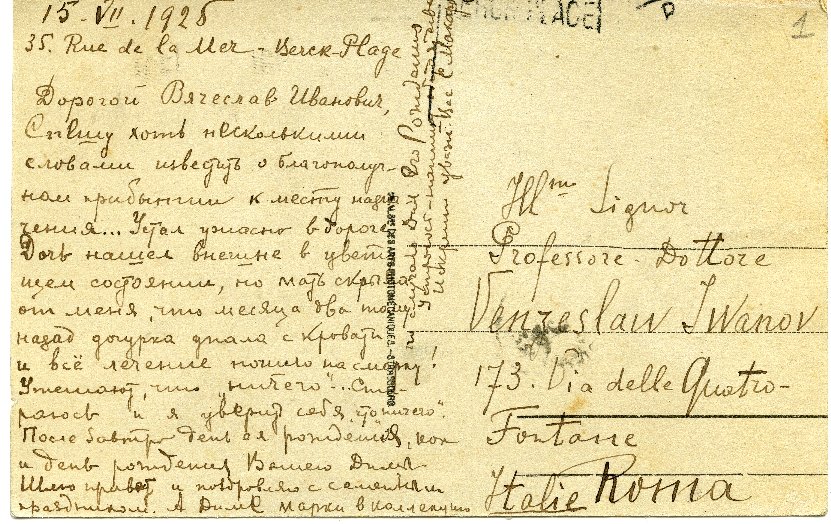 15-VII.1926
35. Rue de la Mer - Berck-Plage
Дорогой Вячеслав Иванович,
Спешу хоть несколькими
словами известить о благополуч-
ном прибытии к месту назна
чения... Устал ужасно в дороге.
Дочь нашел внешне в цвету
щем состоянии, но мать скрыла
от меня, что месяца два тому
назад дочурка упала с кровати
и всё лечение пошло насмарку!
Утешают, что „ничего"... Ста-
раюсь и я уверить себя что „ничего".
После завтра день ея рождения, как
и день рождения Вашего Димы
Шлю привет и поздравляю с семейным
праздником. А Диме марки в коллекцию
по случаю дня Его Рождения
Искренне уваж. Вас С. Мака
BERCK-PLAGE
1
Ill^mo Signor
Professore Dottore
Venzeslaw Iwanov
173. Via delle Quatro-
Fontane
Italie Roma